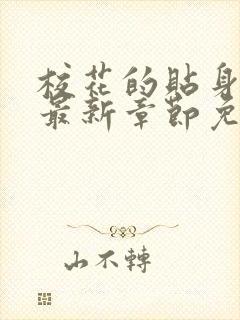 校花的貼身
最新章節免
山不轉